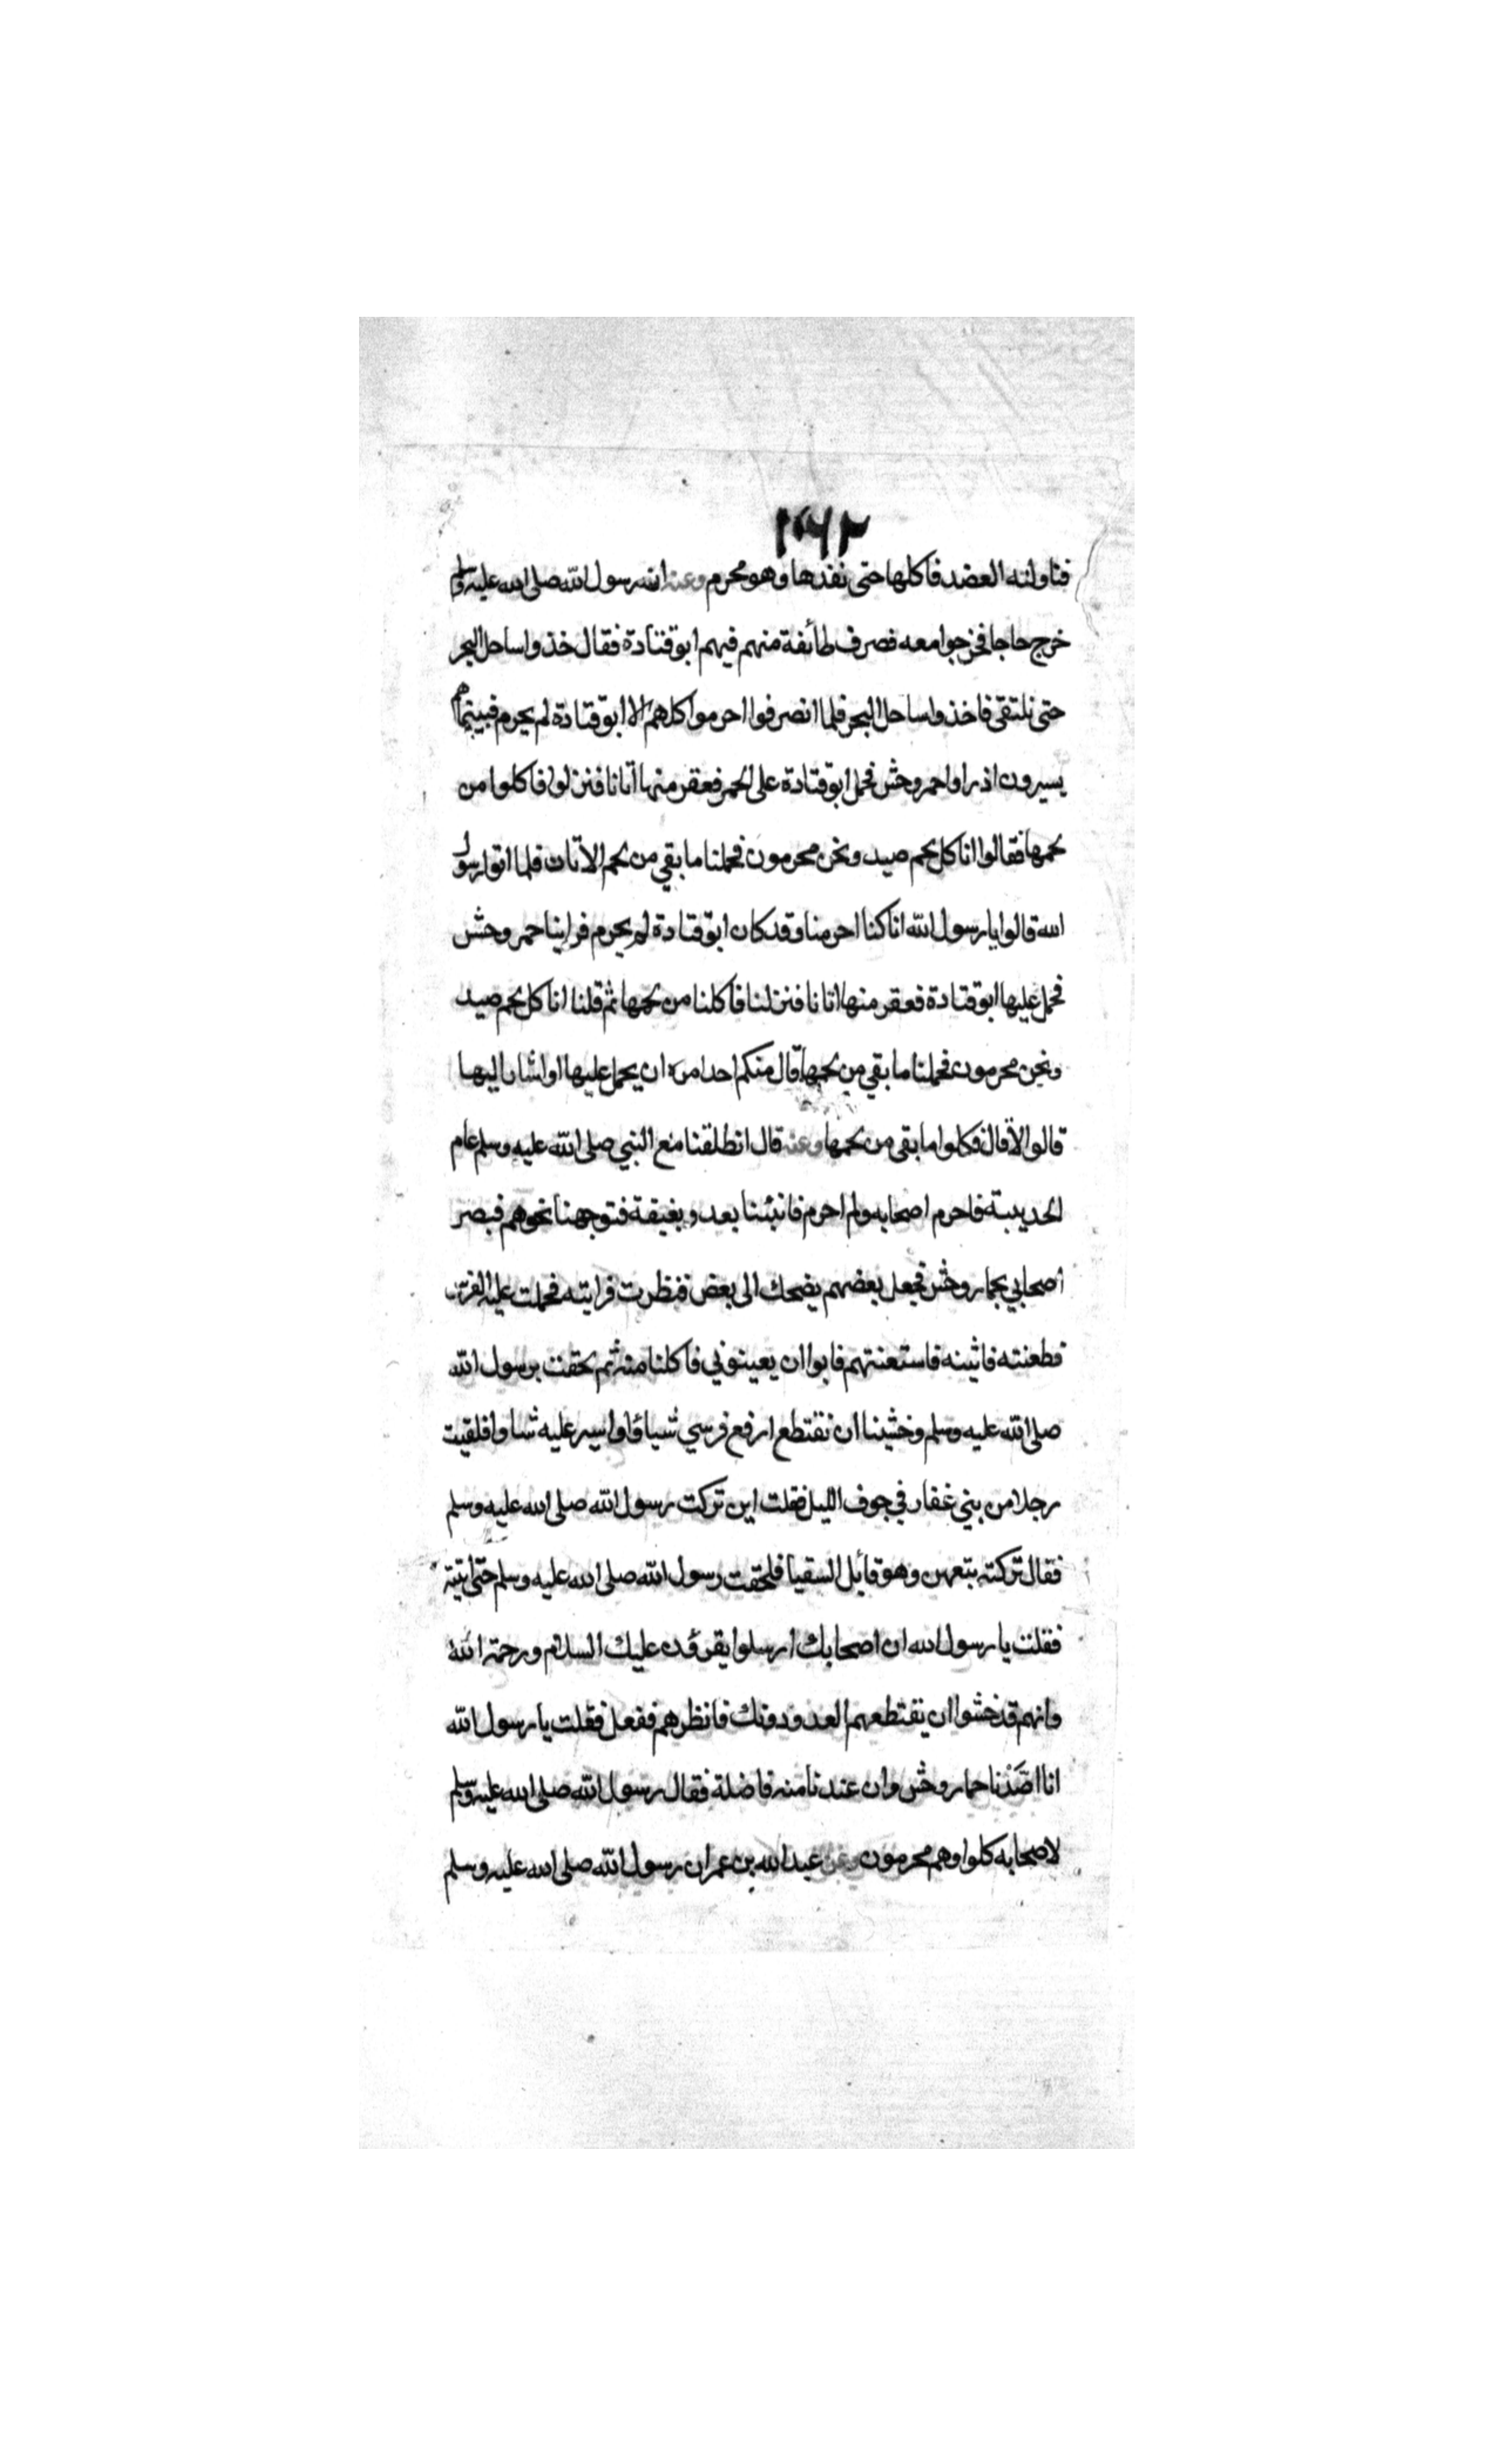 ١٠٦٢
فناولته العضد فاكلها حتى نفدها وهو محرم وعنه ان رسول الله صلى الله عليه وسلم
خرج حاجا فخرجوا معه فصرف طائفة منهم فيهم ابو قتادة فقال خذوا ساحل البحر
حتى نلتقي فاخذوا ساحل البحر فلما انصرفوا احرموا كلهم الا ابو قتادة لم يحرم فبينما هم
يسيرون اذ راوا حمر وحش فحمل ابو قتادة على الحمر فعقر منها اتانا فنزلوا فاكلوا من
لحمها فقالوا اناكل لحم صيد ونحن محرمون فحملنا ما بقي من لحم الاتان فلما اتوا رسول
الله قالوا يا رسول الله انا كنا احرمنا وقد كان ابو قتادة لم يحرم فراينا حمر وحش
فحمل عليها ابو قتادة فعقر منها اتانا فنزلنا فاكلنا من لحمها ثم قلنا اناكل لحم صيد
ونحن محرمون فحملنا ما بقي من لحمها قال منكم احد امره ان يحمل عليها او اشار اليها
قالوا لا قال فكلوا ما بقي من لحمها وعنه قال انطلقنا مع النبي صلى الله عليه وسلم عام
الحديبية فاحرم اصحابه ولم احرم فانبئنا بعدو بغيقة فتوجهنا نحوهم فبصر
اصحابي بحمار وحش فجعل بعضهم يضحك الى بعض فنظرت فرايته فحملت عليه الفرس
فطعنته فاثبته فاستعنتهم فابوا ان يعينوني فاكلنا منه ثم لحقت برسول الله
صلى الله عليه وسلم وخشينا ان نقتطع ارفع فرسي شياؤا واسير عليه شاوا فلقيت
رجلا من بني غفار في جوف الليل فقلت اين تركت رسول الله صلى الله عليه وسلم
فقال تركته بتعهن وهو قائل السقيا فلحقت رسول الله صلى الله عليه وسلم حتى اتيته
فقلت يا رسول الله ان اصحابك ارسلوا يقرؤن عليك السلام ورحمة الله
وانهم قد خشوا ان يقتطعهم العدو دونك فانظرهم ففعل فقلت يا رسول الله
انا اصَّدْنا حمار وحش وان عندنا منه فاضلة فقال رسول الله صلى الله عليه وسلم
لاصحابه كلوا وهم محرمون وعن عبد الله بن عمر ان رسول الله صلى الله عليه وسلم